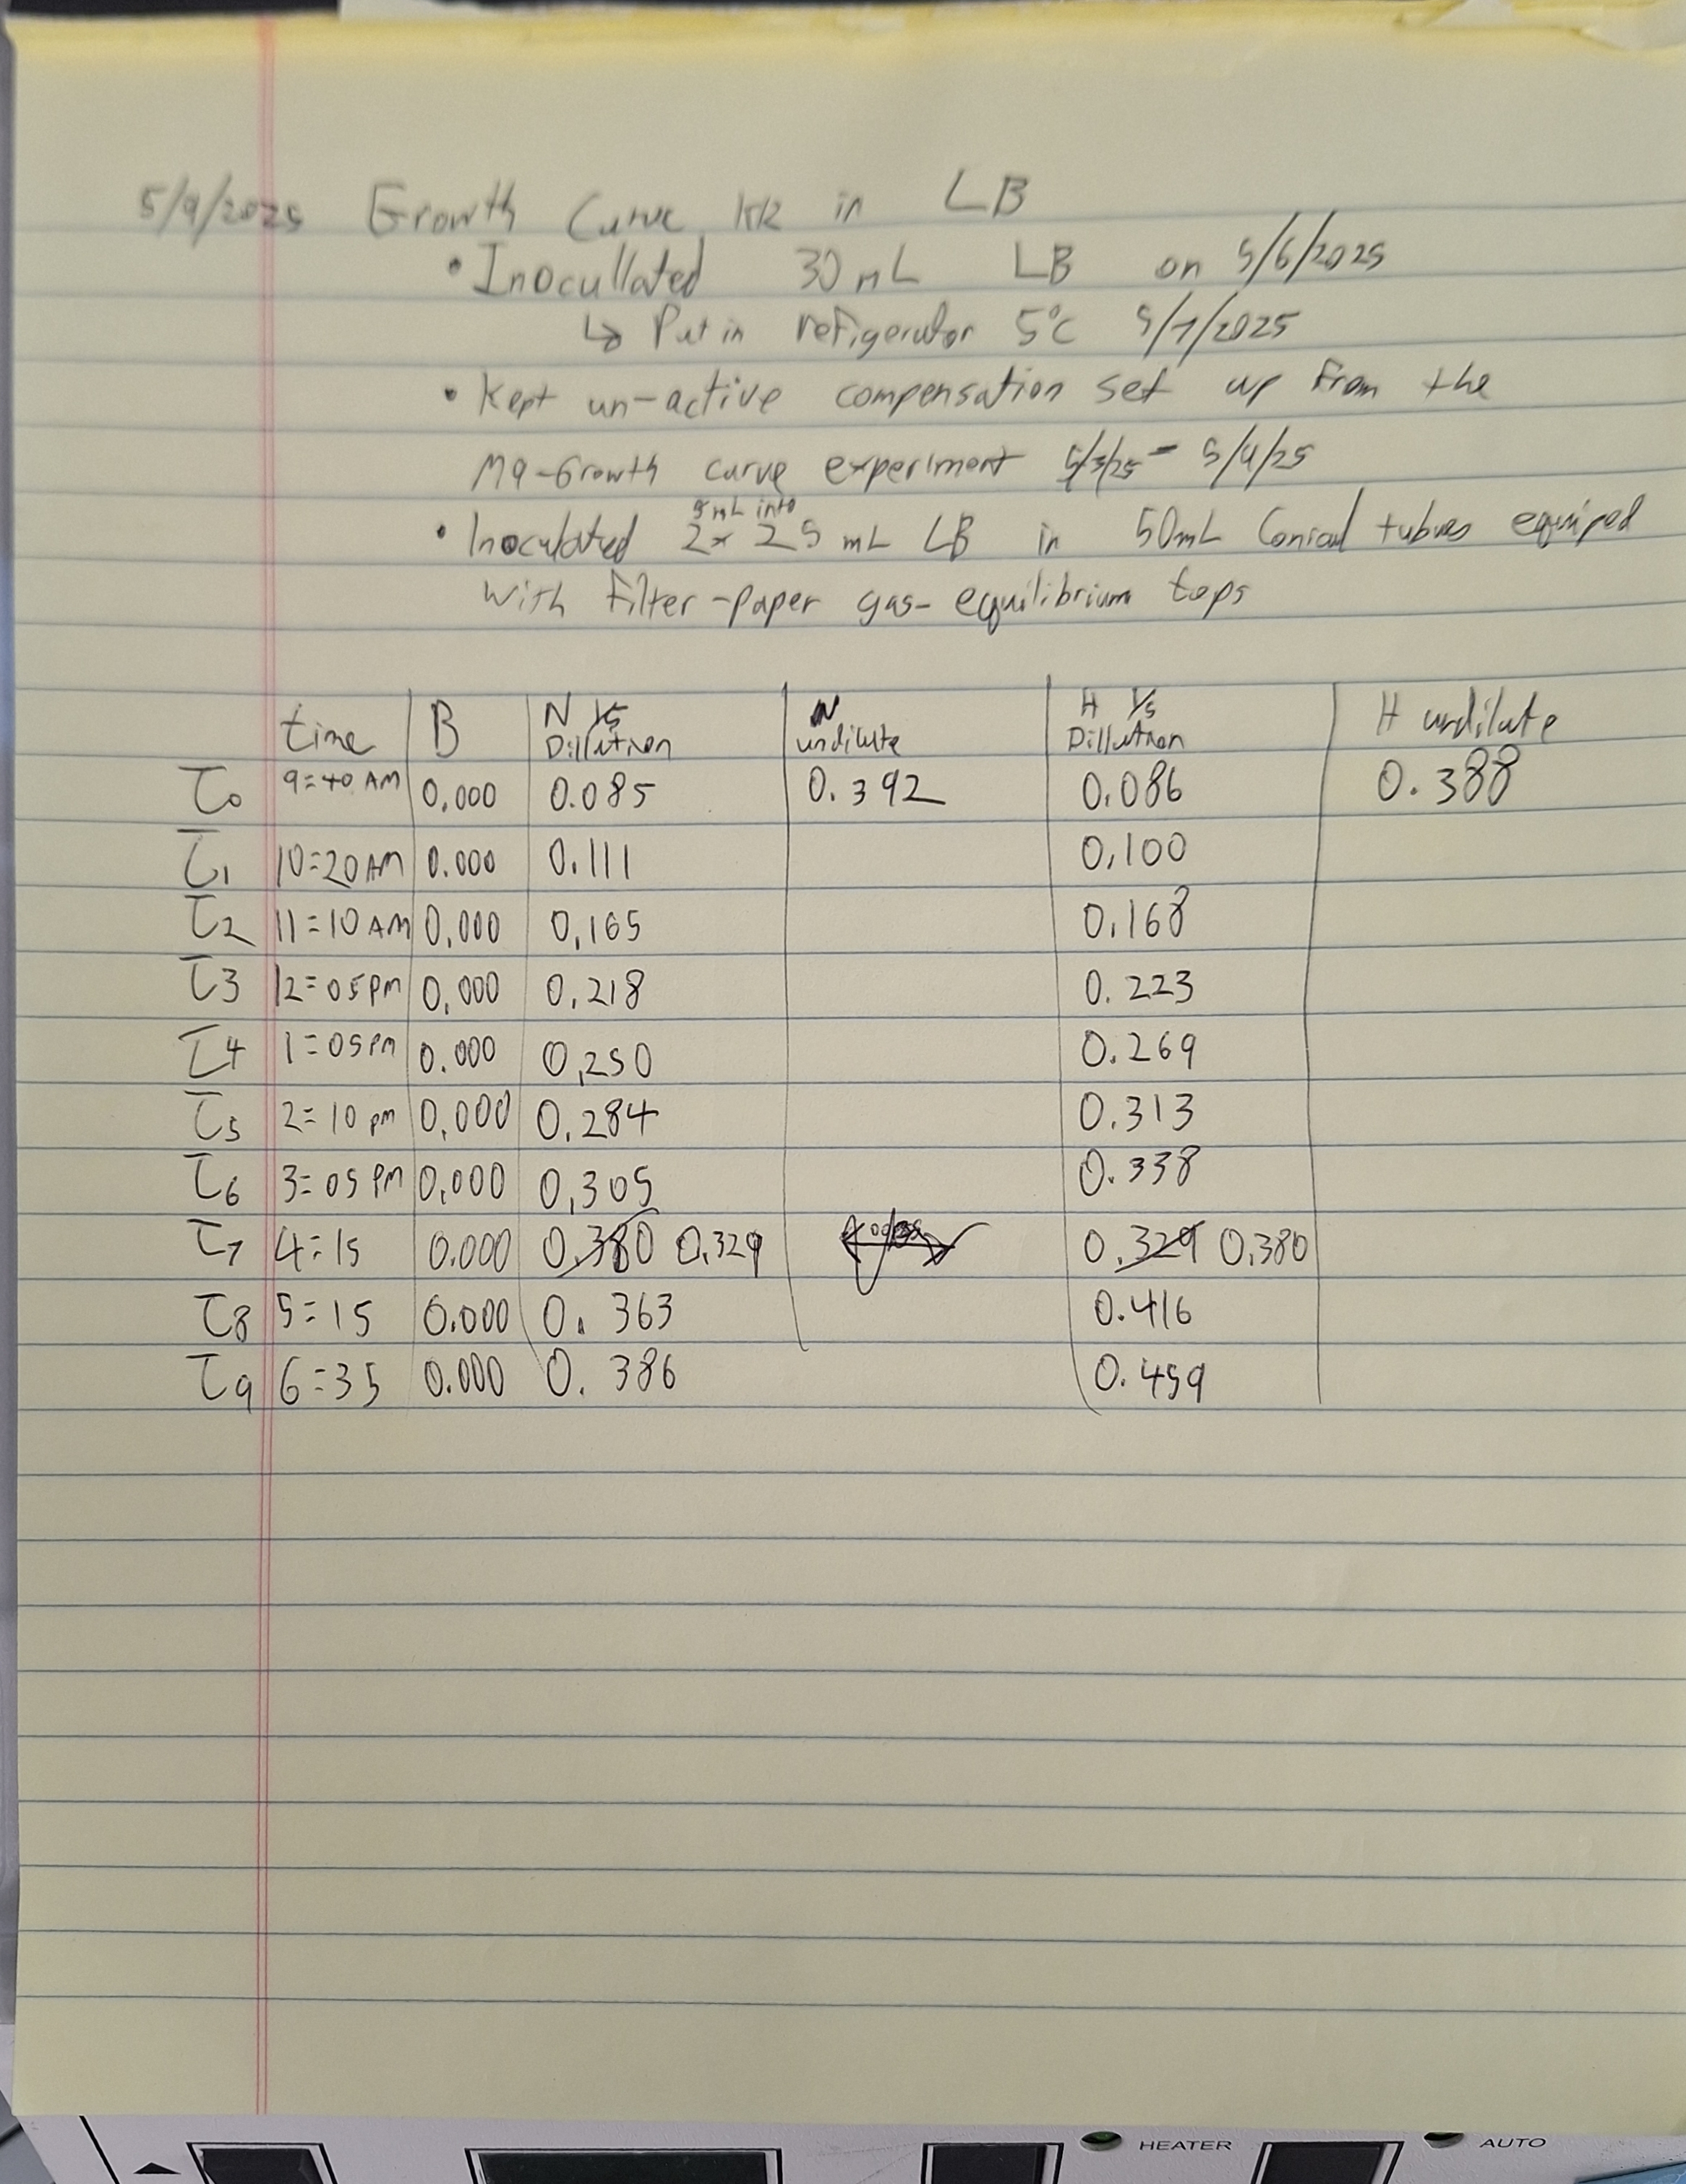 5/9/2025 Growth Curve KR in LB
• Inocullated 30 mL LB on 5/6/2025
↳ Put in refigerator 5°C 5/7/2025
• Kept un-active compensation set up from the
M9-Growth curve experiment 5/3/25 - 5/4/25
5 mL into
• Inoculated 2x 25 mL LB in 50mL Conical tubes equiped
with filter-paper gas-equilibrium tops
time B N 1/5 Dillution N undilute H 1/5 Dillution H undilute
T0 9:40 AM 0.000 0.085 0.392 0.086 0.388
T1 10:20 AM 0.000 0.111 0.100
T2 11:10 AM 0.000 0.165 0.168
T3 12:05 PM 0.000 0.218 0.223
T4 1:05 PM 0.000 0.250 0.269
T5 2:10 pm 0.000 0.284 0.313
T6 3:05 PM 0.000 0.305 0.338
T7 4:15 0.000 0.380 0.329 0.329 0.380
T8 5:15 0.000 0.363 0.416
T9 6:35 0.000 0.386 0.459
HEATER AUTO